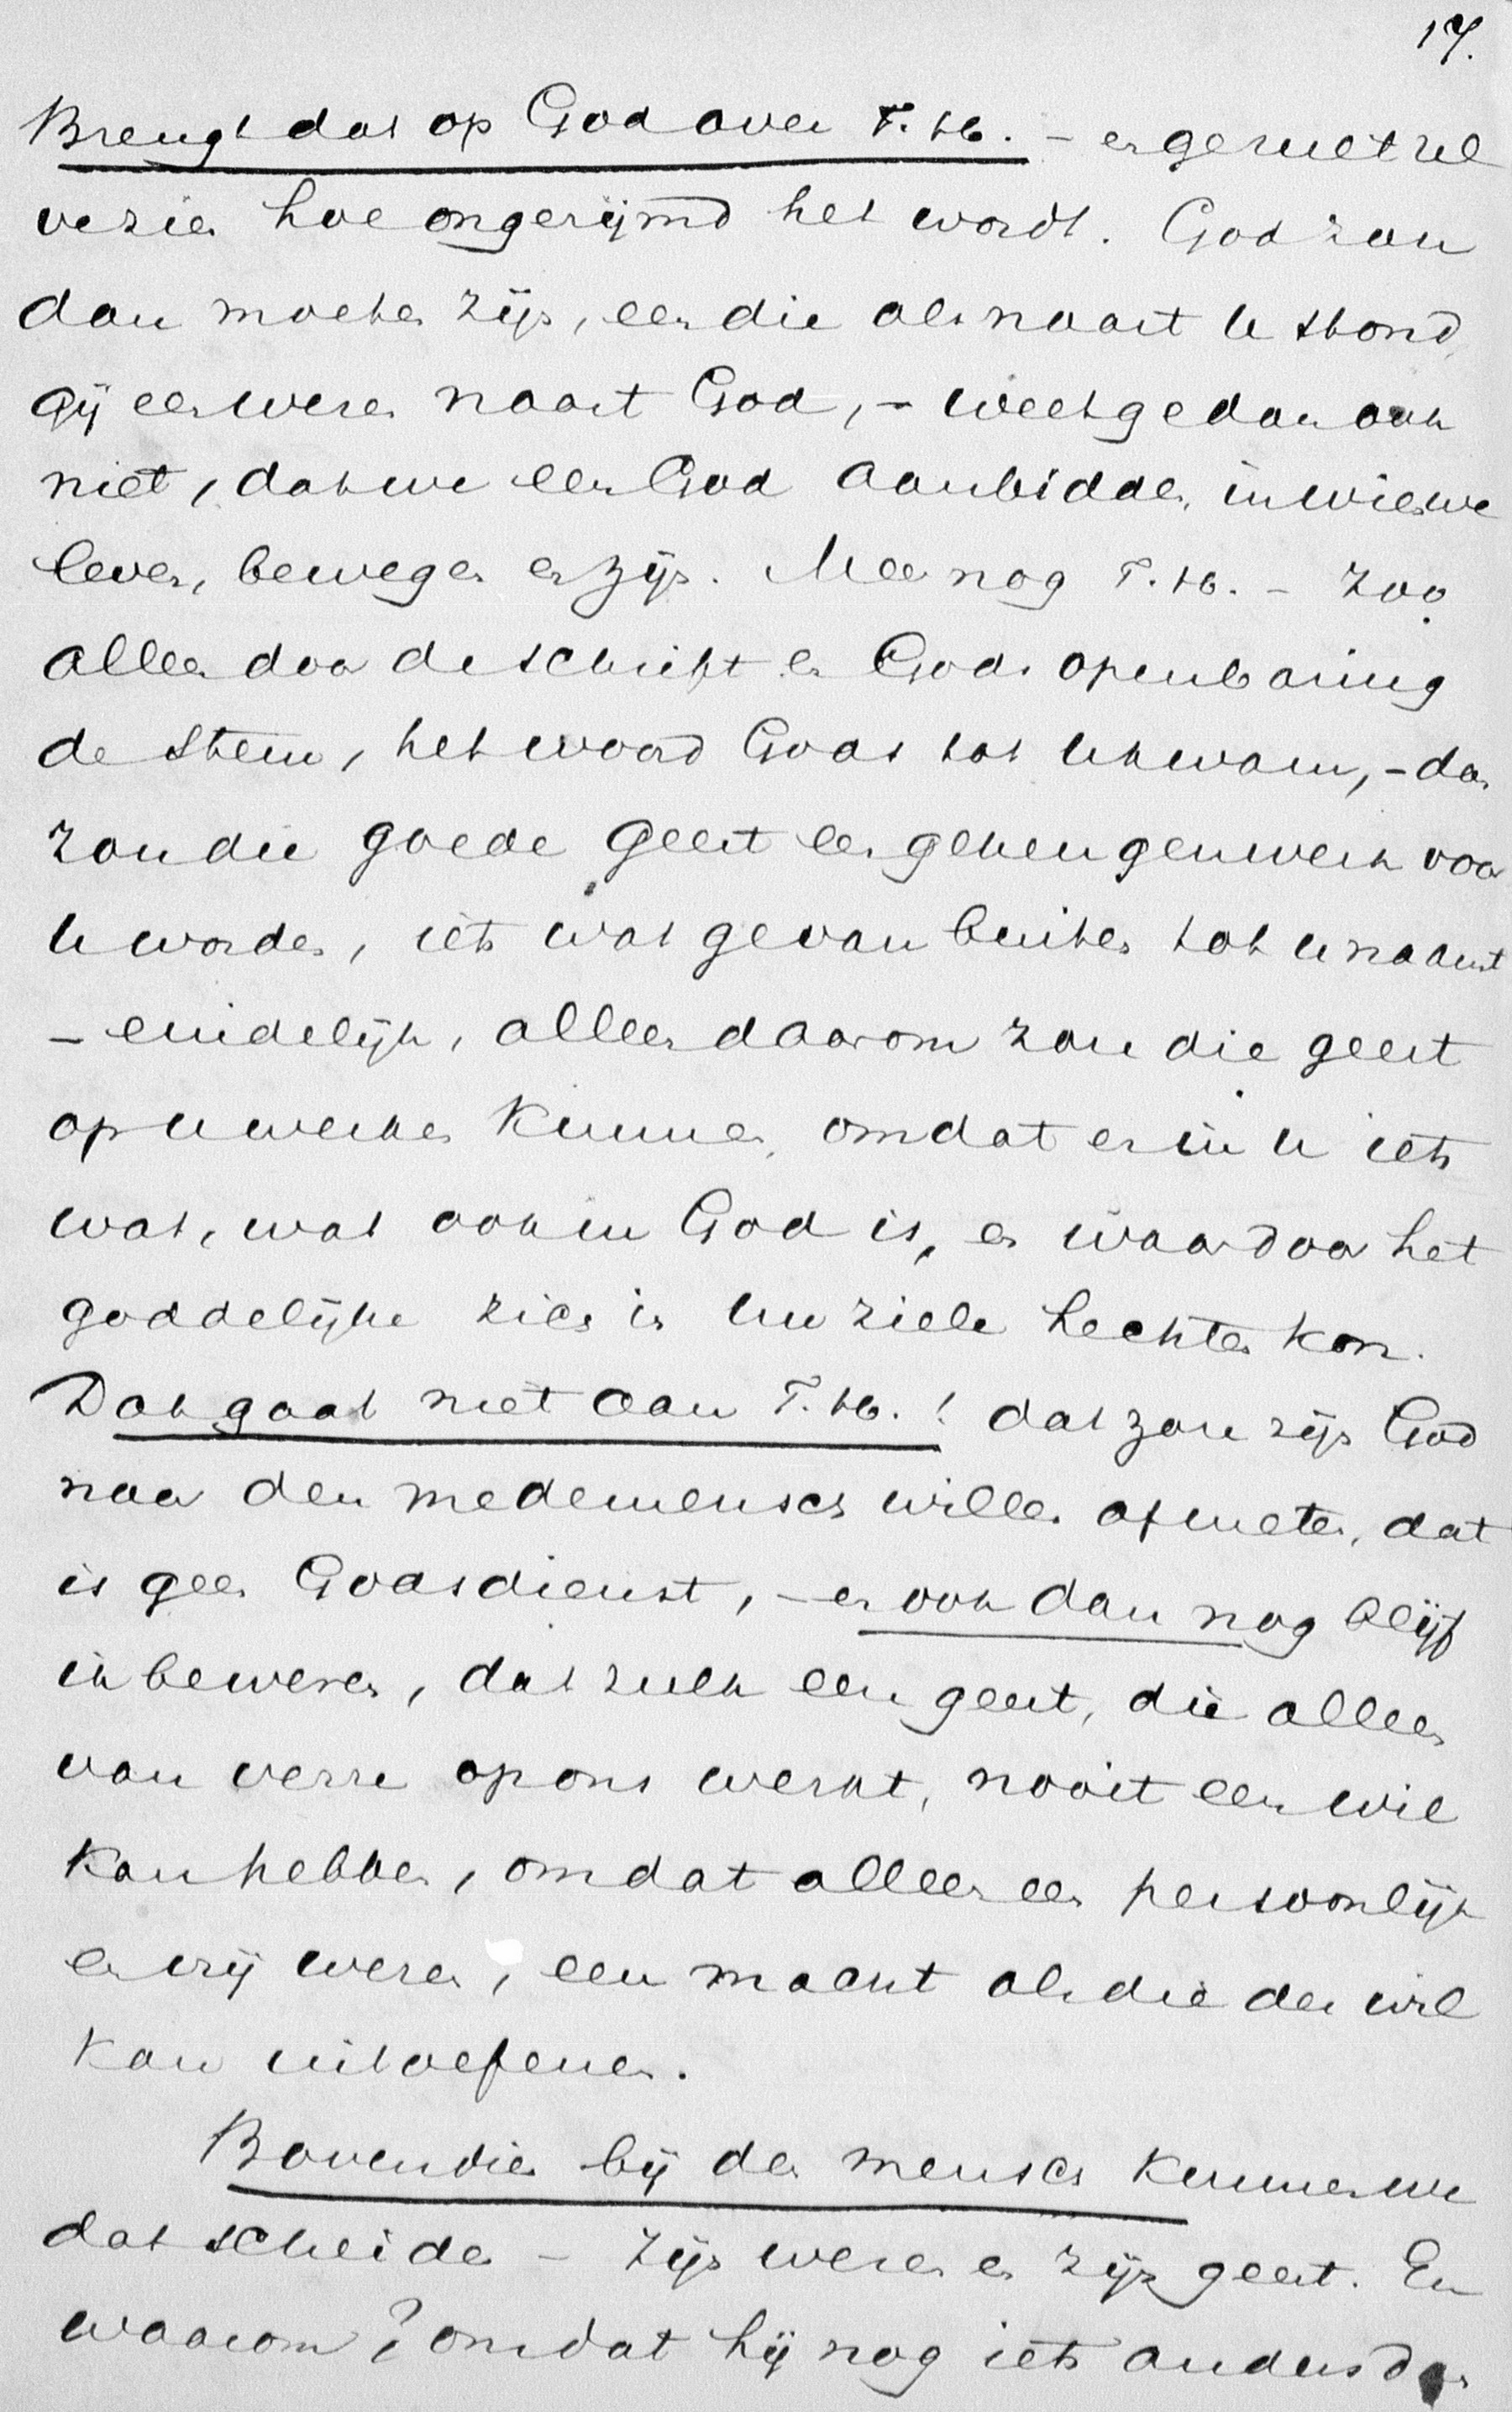 17.
Brengt dat op God over T. H. - en ge moet zelf
vezien hoe ongerijmd het wordt. God zou
dan moeten zijn, een die als naast U stond
gij een wezen naast God, - weet ge dan ook
niet, dat we een God aanbidden, in wien we
leven, bewegen en zijn. Meer nog T. H. - zoo
alleen door de schrift en Gods openbaring
de stem, het woord Gods tot U kwam, - dan
zou die goede geest een geheugenwerk voor
U worden, iets wat ge van buiten tot u naamt
- eindelijk, alleen daarom zou die geest
op U werken kunnen, omdat er in U iets
was, wat ook in God is, en waardoor het
goddelijke zich in Uw ziele hechten kon.
Dat gaat niet aan T. H. ! dat zou zijn God
naar den medemensch willen afmeten, dat
is geen Godsdienst, - en ook dan nog blijf
ik beweren, dat zulk een geest, die alleen
van verre op ons werkt, nooit een wil
kan hebben, omdat alleen een persoonlijk
en vrij wezen, een macht als die der wil
kan uitoefenen.
Bovendien bij den mensch kunnen we
dat scheiden - zijn wezen en zijn geest. En
waarom? omdat hij nog iets anders dan